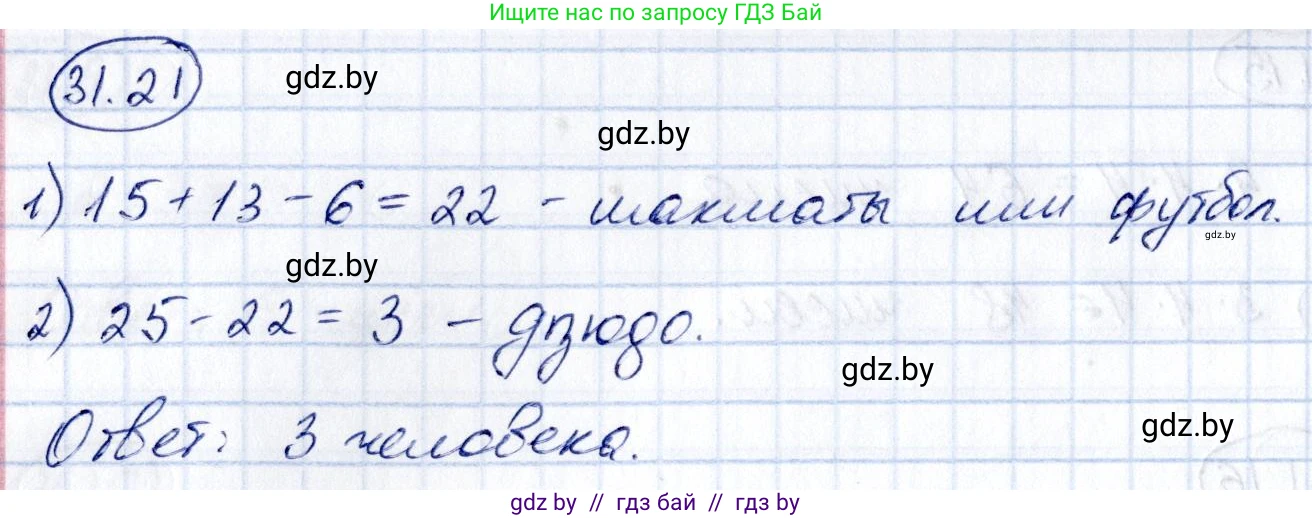 Ищите нас по запросу ГДЗ Бай
31.21
gdz.by
gdz.by
1) 15 + 13 - 6 = 22 - шахматы или футбол.
gdz.by
gdz.by
2) 25 - 22 = 3 - дзюдо.
gdz.by
gdz.by
Ответ: 3 человека.
gdz by // гдз бай // gdz by